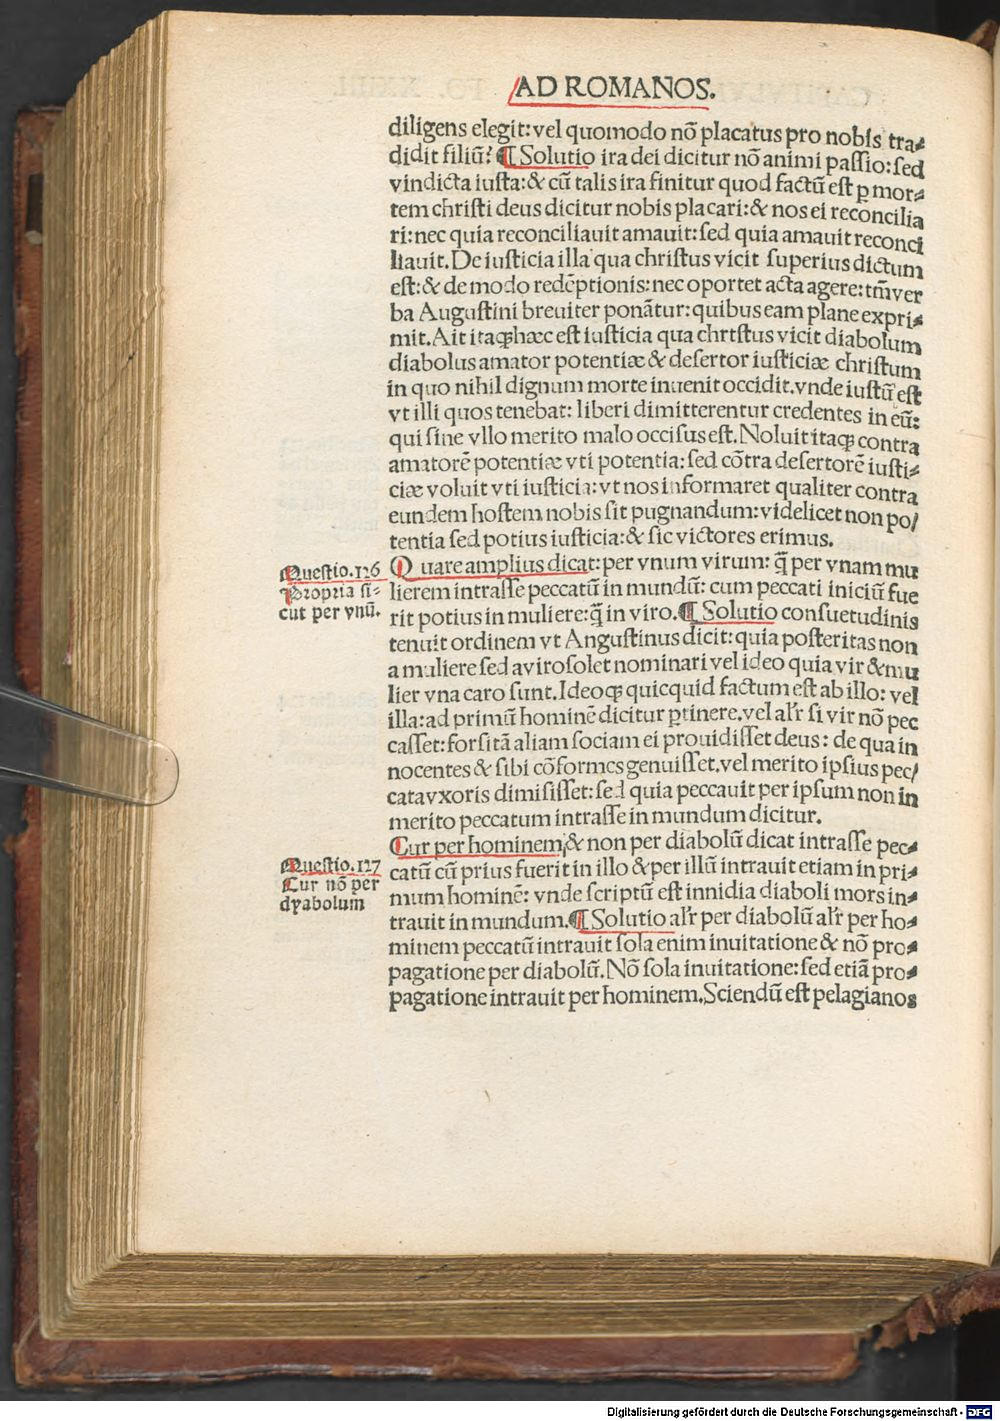 AD ROMANOS.
diligens elegit: vel quomodo nō placatus pro nobis tra⸗
didit filiū? ¶ Solutio ira dei dicitur nō animi passio: sed
vindicta iusta: & cū talis ira finitur quod factū est ꝑ mor⸗
tem christi deus dicitur nobis placari: & nos ei reconcilia
ri: nec quia reconciliauit amauit: sed quia amauit reconci
liauit. De iusticia illa qua christus vicit superius dictum
est: & de modo redēptionis: nec oportet acta agere: tm̄ ver
ba Augustini breuiter ponātur: quibus eam plane expri⸗
mit. Ait itaqꝫ hæc est iusticia qua chrtstus vicit diabolum
diabolus amator potentiæ & desertor iusticiæ christum
in quo nihil dignum morte inuenit occidit. vnde iustū est
vt illi quos tenebat: liberi dimitterentur credentes in eū:
qui sine vllo merito malo occisus est. Noluit itaqꝫ contra
amatorē potentiæ vti potentia: sed cōtra desertorē iusti⸗
ciæ voluit vti iusticia: vt nos informaret qualiter contra
eundem hostem nobis sit pugnandum: videlicet non po/
tentia sed potius iusticia: & sic victores erimus.
Questio. 126
Propria si⸗
cut per vnū.
Quare amplius dicat: per vnum virum: q̄ per vnam mu
lierem intrasse peccatū in mundū: cum peccati iniciū fue
rit potius in muliere: q̄ in viro. ¶ Solutio consuetudinis
tenuit ordinem vt Angustinus dicit: quia posteritas non
a muliere sed a viro solet nominari vel ideo quia vir & mu
lier vna caro sunt. Ideoqꝫ quicquid factum est ab illo: vel
illa: ad primū hominē dicitur ꝑtinere. vel al'r si vir nō pec
casset: forsitā aliam sociam ei prouidisset deus: de qua in
nocentes & sibi cōformes genuisset. vel merito ipsius pec/
cata vxoris dimisisset: sed quia peccauit per ipsum non in
merito peccatum intrasse in mundum dicitur.
Questio. 127
Cur nō per
dyabolum
Cur per hominem, & non per diabolū dicat intrasse pec⸗
catū cū prius fuerit in illo & per illū intrauit etiam in pri⸗
mum hominē: vnde scriptū est innidia diaboli mors in⸗
trauit in mundum. ¶ Solutio al'r per diabolū al'r per ho⸗
minem peccatū intrauit sola enim inuitatione & nō pro⸗
pagatione per diabolū. Nō sola inuitatione: sed etiā pro⸗
pagatione intrauit per hominem. Sciendū est pelagianos
Digitalisierung gefördert durch die Deutsche Forschungsgemeinschaft - DFG